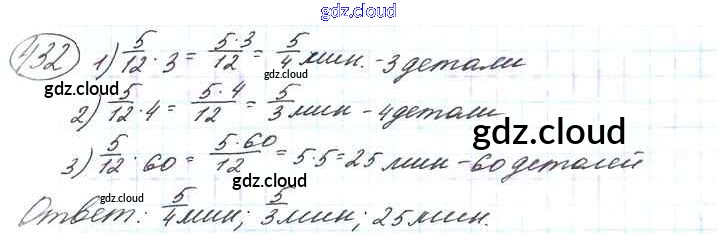 gdz.cloud
432 1) 5/12 · 3 = 5·3/12 = 5/4 мин. - 3 детали
gdz.cloud gdz.cloud
2) 5/12 · 4 = 5·4/12 = 5/3 мин - 4 детали
gdz.cloud gdz.cloud
3) 5/12 · 60 = 5·60/12 = 5·5 = 25 мин - 60 деталей
gdz.cloud gdz.cloud
Ответ: 5/4 мин; 5/3 мин; 25 мин.
gdz.cloud